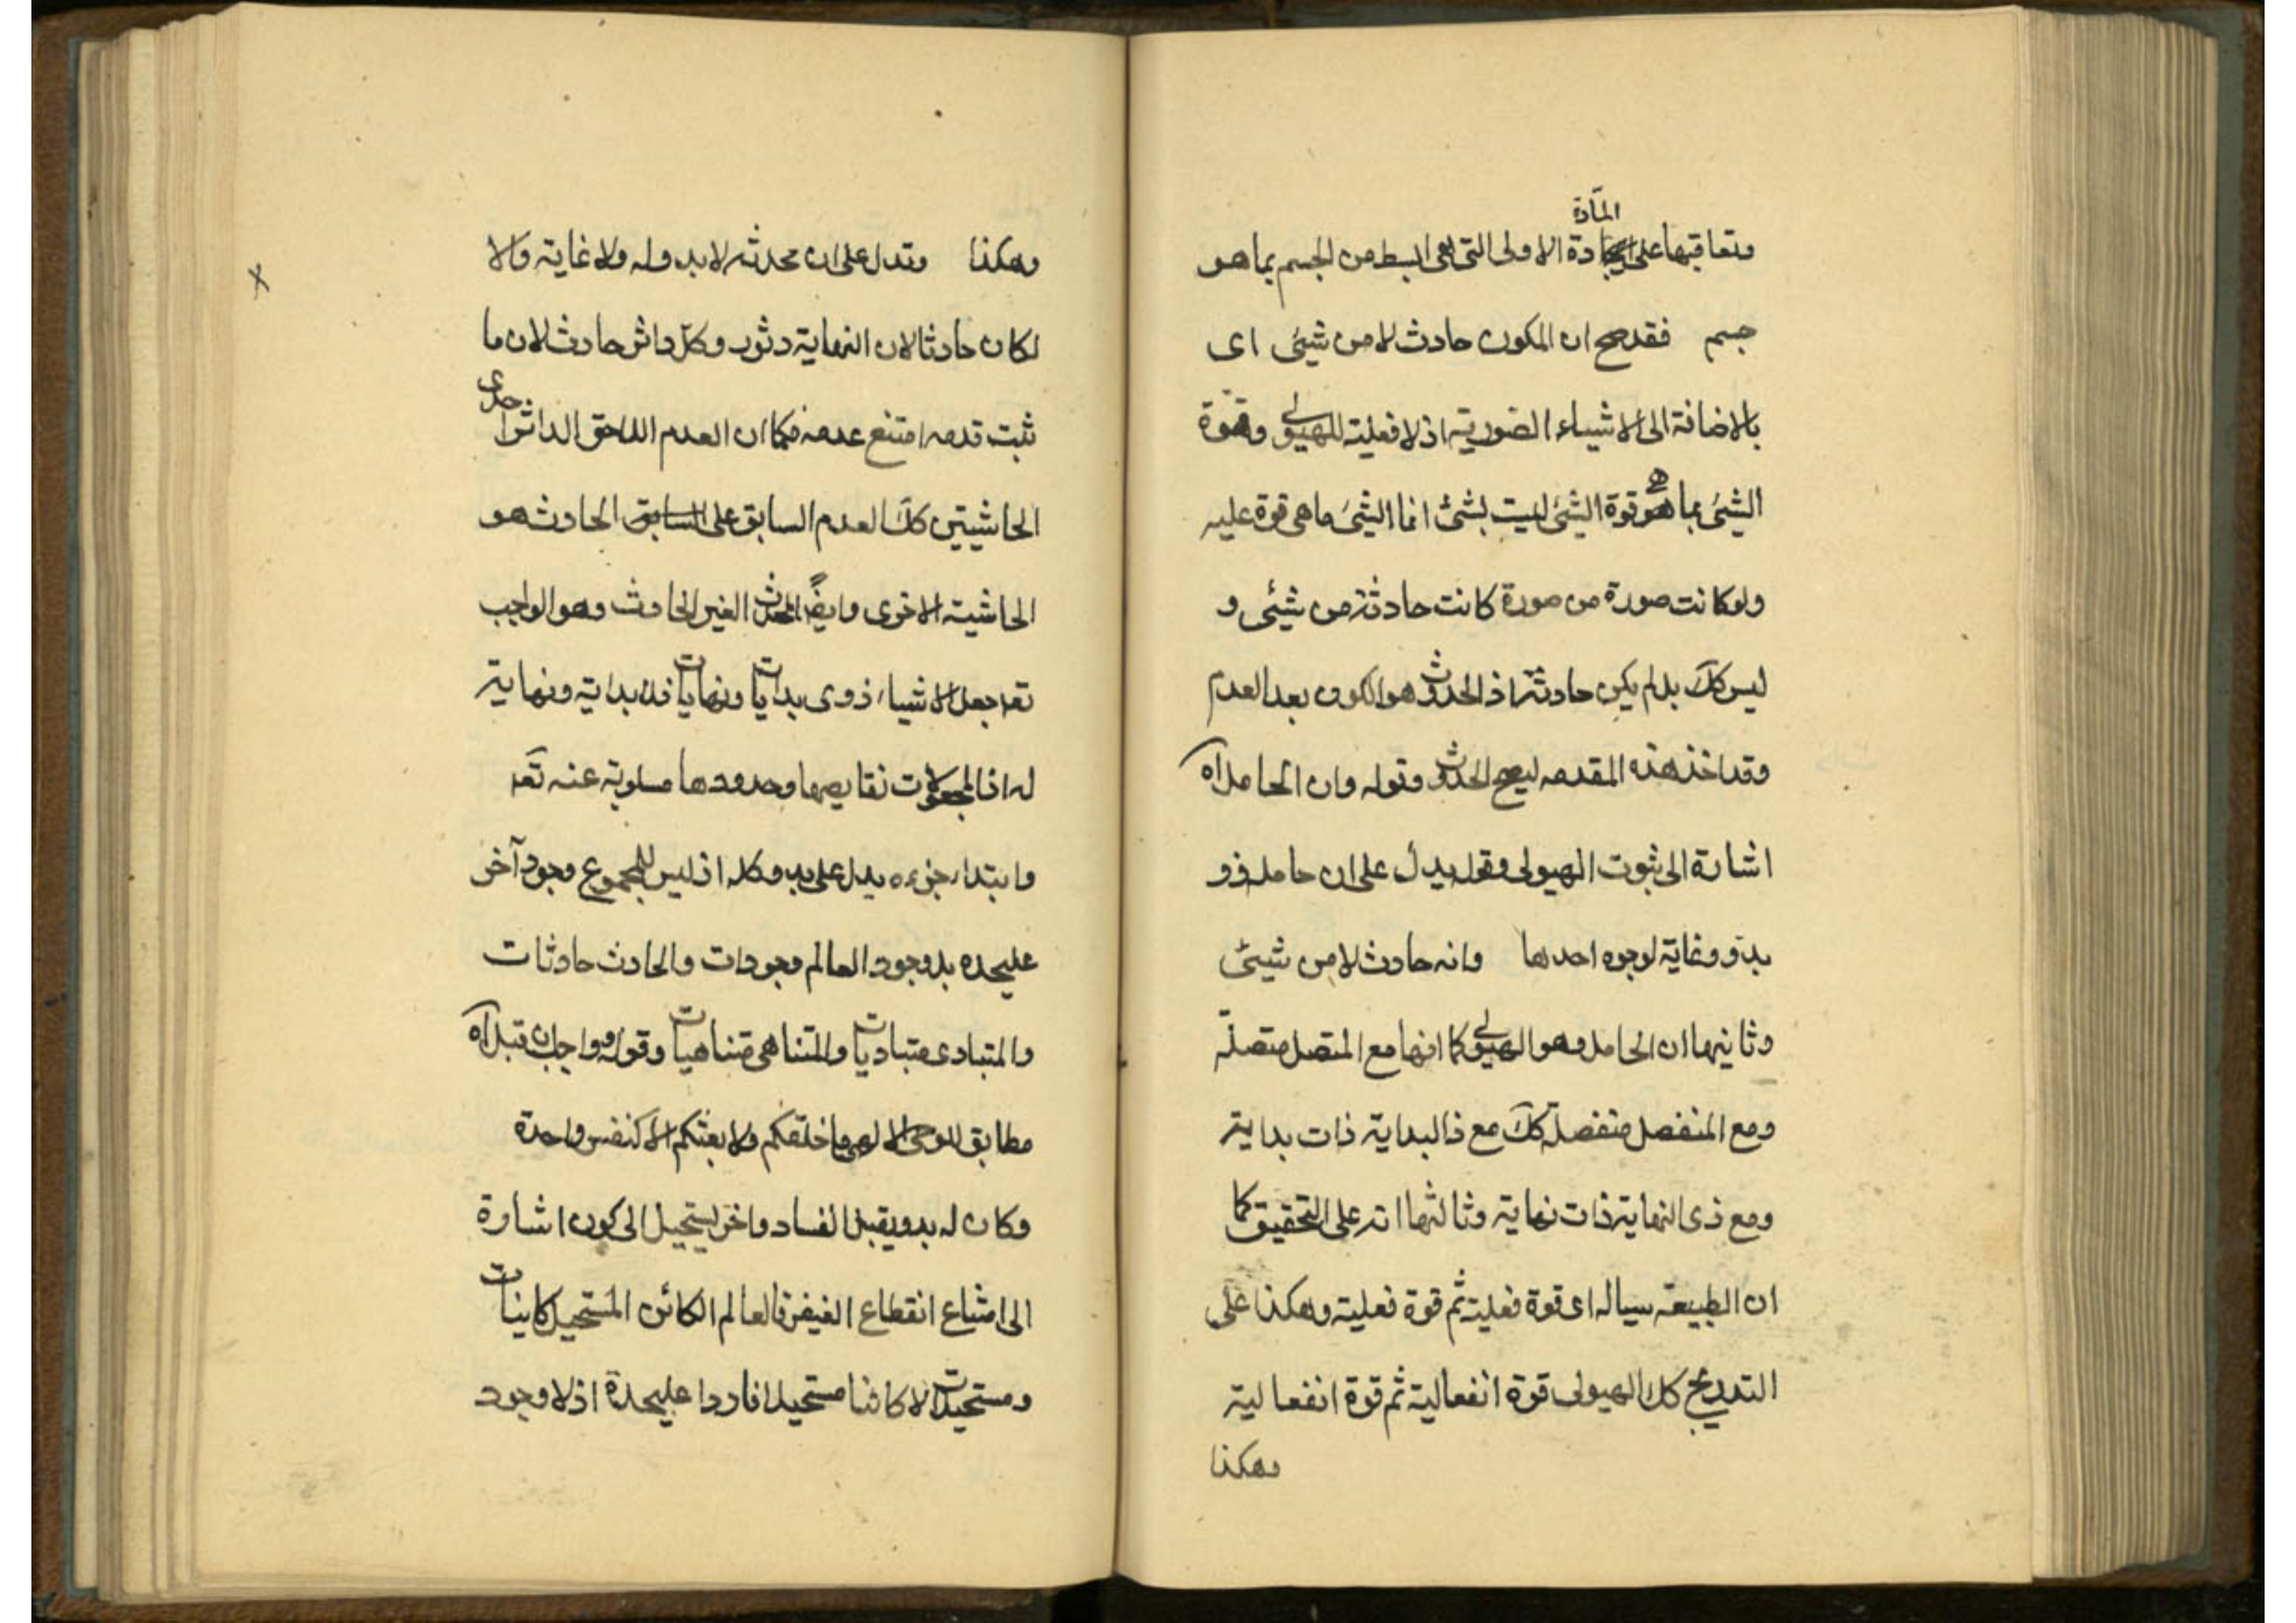 المادّة
وتعاقبها على المادة الاولى التى هى ابسط من الجسم بما هو
جسم فقد صح ان المكون حادث لا من شيئى اى
بالاضافة الى الاشياء الصورية اذ لا فعلية للهيولى وقوة
الشيئ بما هى قوة الشيئ ليست بشئ انما الشيئ ما هى قوة عليه
ولو كانت صورة من صورة كانت حادثة من شيئى و
ليس كك بل لم يكن حادثة اذ الحدوث هو الكون بعد العدم
وقد اخذ هذه المقدمه ليصح الحدوث وقوله وان الحامل آه
اشارة الى ثبوت الهيولى وقوله يدل على ان حامله ذو
بدو وغاية لوجوه احدها وانه حادث لا من شيئى
وثانيها ان الحامل وهو الهيولى كما انها مع المتصل متصلة
ومع المنفصل منفصلة كك مع ذ البداية ذات بداية
ومع ذى النهاية ذات نهاية وثالثها انه على التحقيق كما
ان الطبيعة سياله اى قوة فعلية ثم قوة فعلية وهكذا على
التدريج كك الهيولى قوة انفعالية ثم قوة انفعالية
وهكذا
وهكذا وتدل على ان محدثه لا بدو له ولا غاية والا
لكان حادثا لان النهاية دثور وكل داثر حادث لان ما
ثبت قدمه امتنع عدمه فكما ان العدم اللاحق الداثر احدى
الحاشيتين كك العدم السابق على السابق الحادث هو
الحاشية الاخرى وايضً المحدث الغير الحادث وهو الواجب
تعه جعل الاشياء ذوى بدايات ونهايات فلا بداية ونهاية
له اذ المجعولات نقايصها وحدودها مسلوبة عنه تعه
وابتداء جزءه يدل على بدو كله اذ ليس للمجموع وجود آخر
عليحده بل وجود العالم وجودات والحادث حادثات
والمتبادى متباديات والمتناهى متناهيات وقوله وواجب ان قبل آه
مطابق للوحى الالهى ما خلقكم ولا بعثكم الا كنفس واحدة
وكان له بدو يقبل الفساد واخر يستحيل الى كون اشارة
الى امتناع انقطاع الفيض فالعالم الكائن المستحيل كاينات
ومستحيلات لا كائنا مستحيلا فاردا عليحدة اذ لا وجود